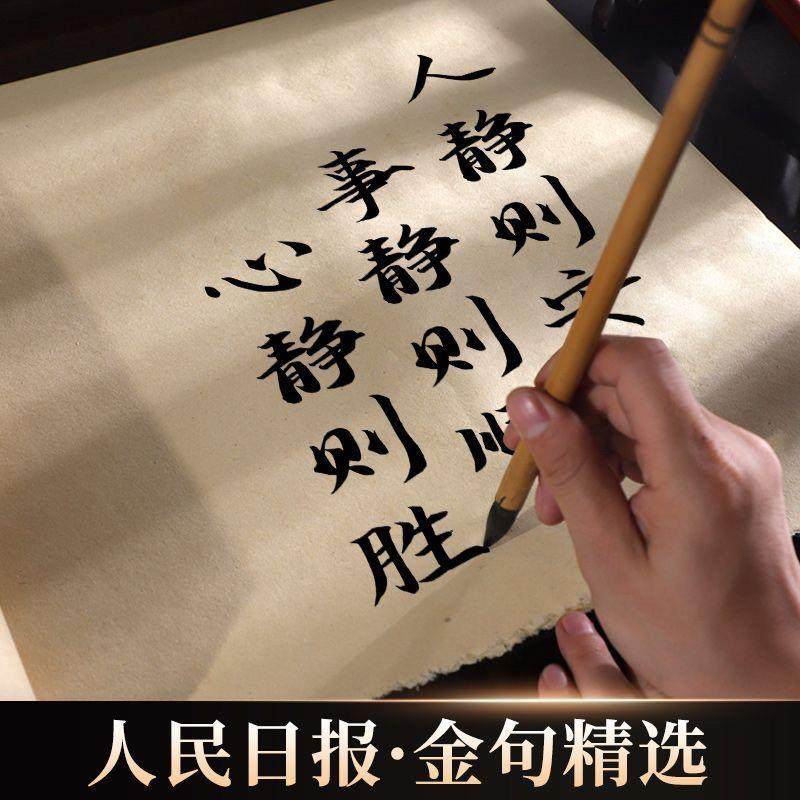 人静则
事静则
心静则胜
人民日报·金句精选